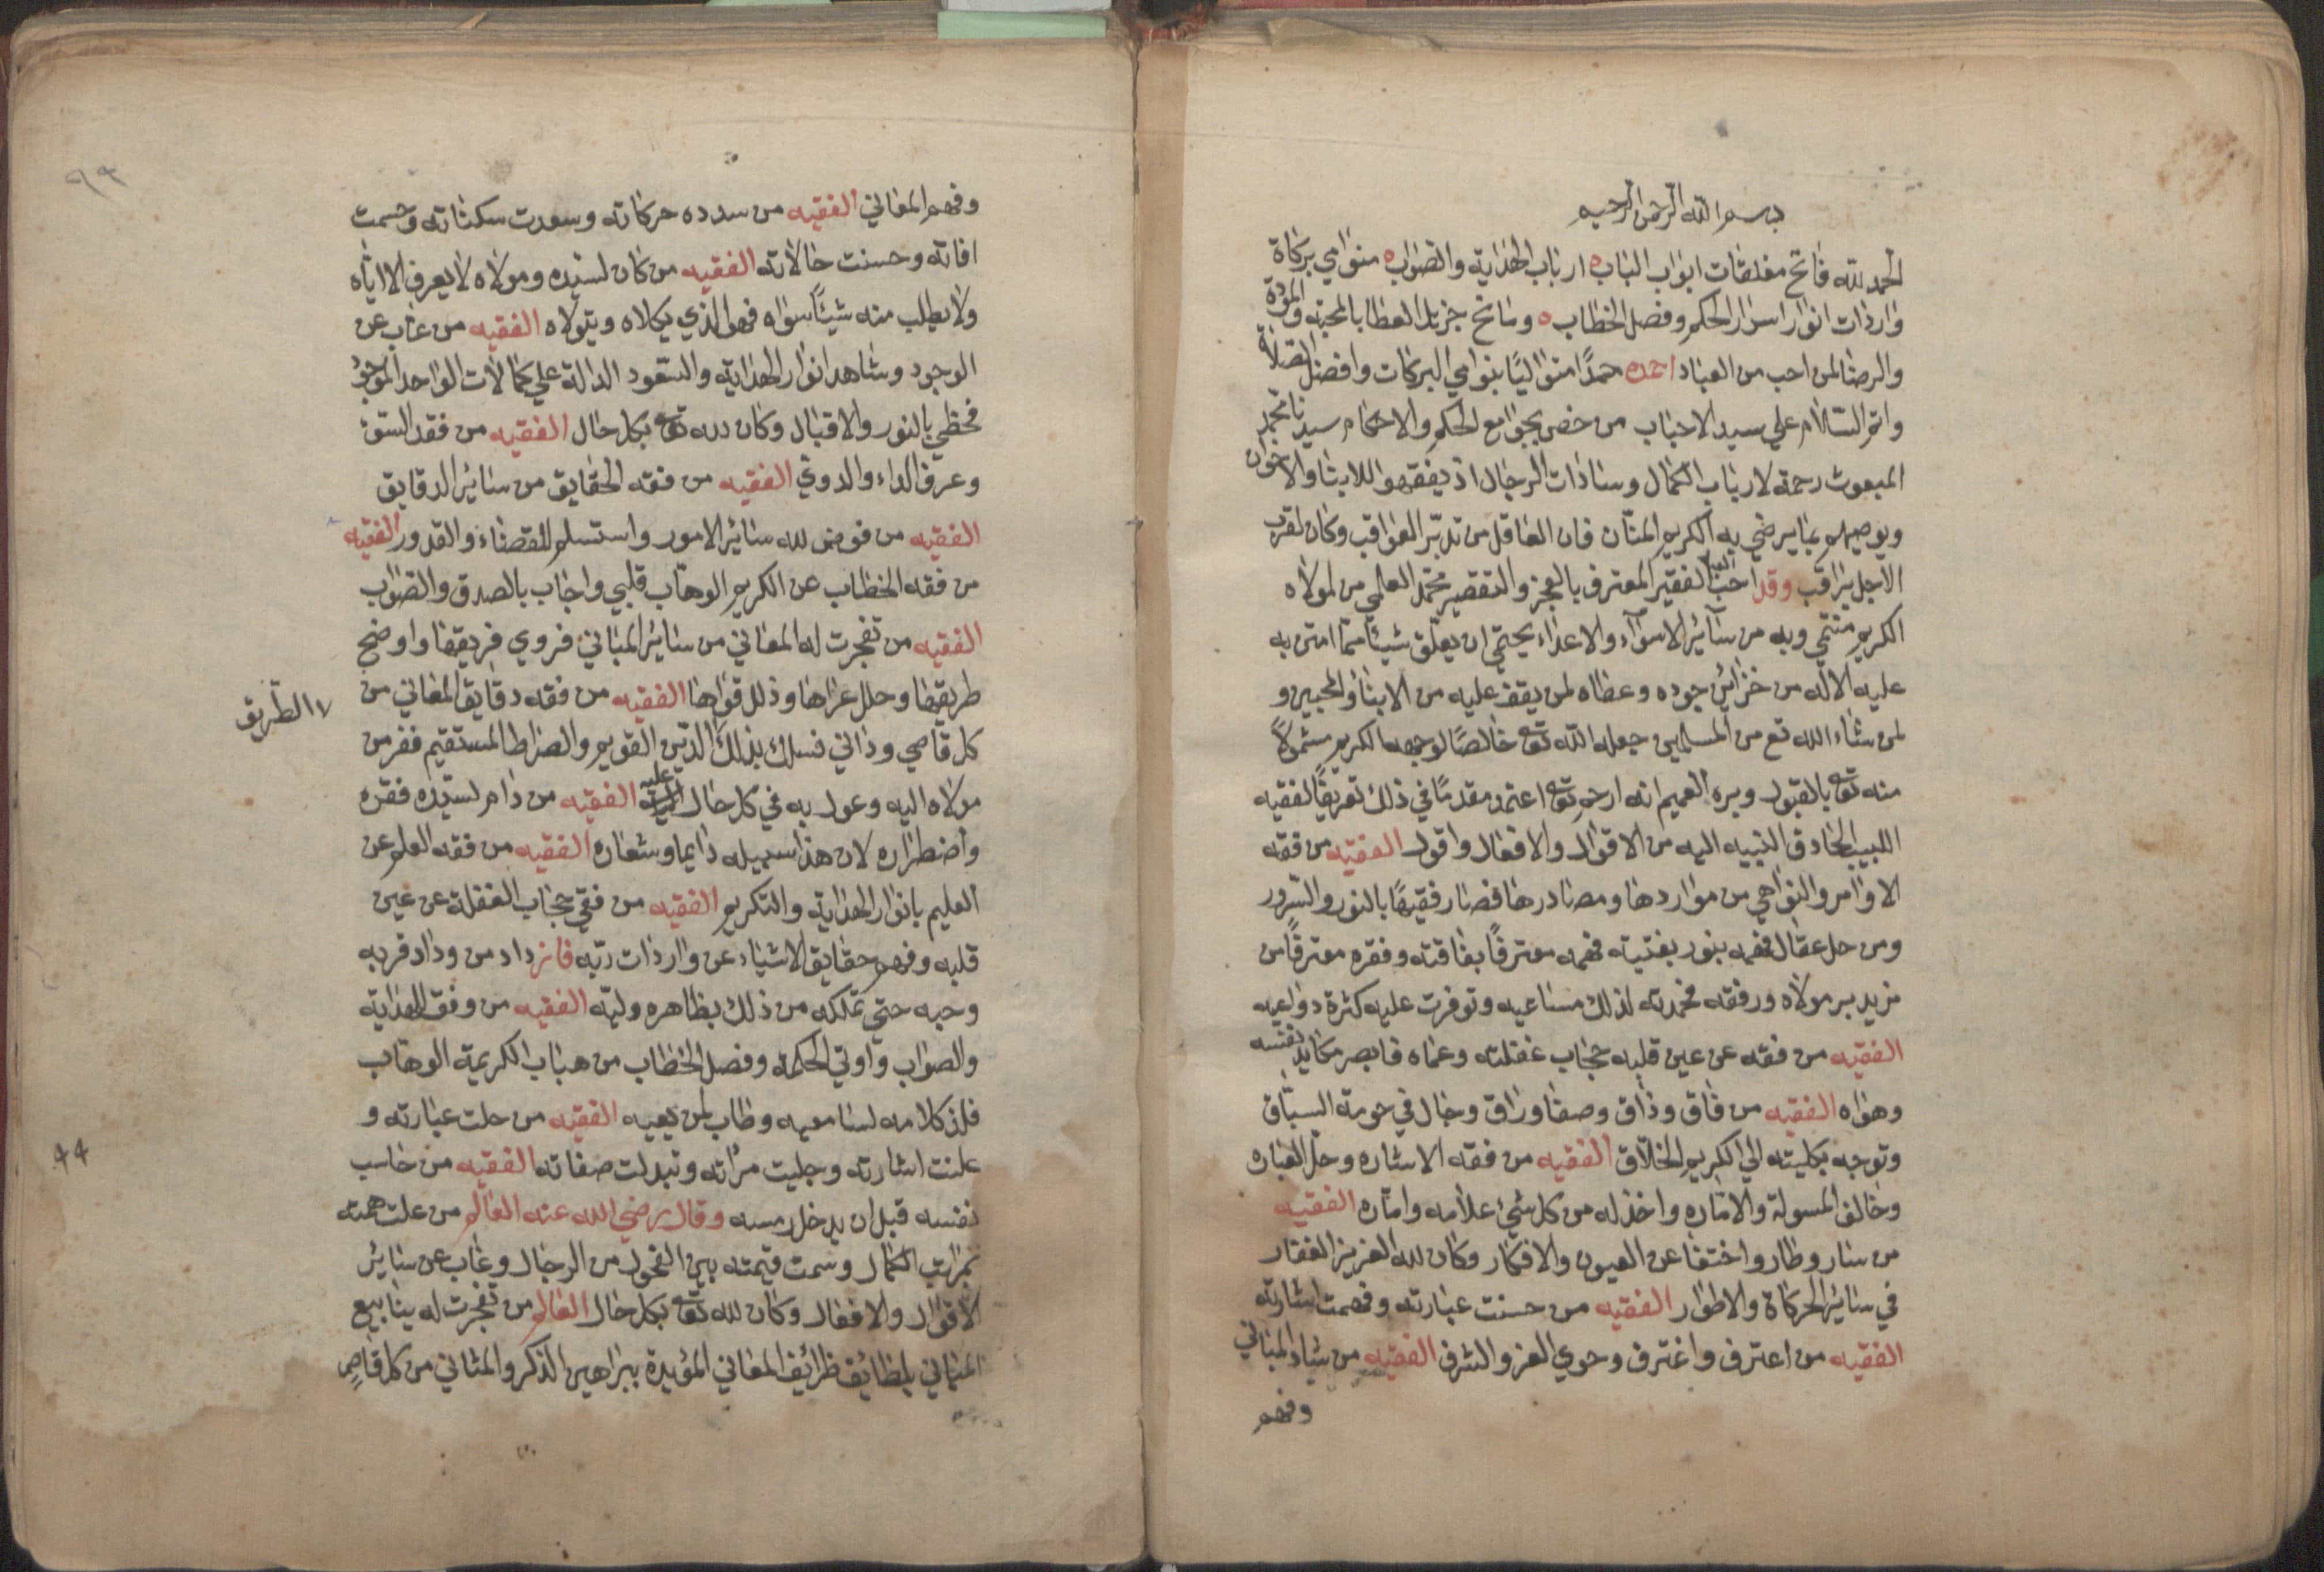 بسم الله الرحمن الرحيم
الحمد لله فاتح مغلقات ابواب الباب ارباب الهداية والصواب منوامي بركاة
واردات انوار اسرار الحكم وفصل الخطاب ومانح جزيل العطا بالمحبة والمودة
والرضا لمن احب من العباد احمده حمدًا متواليًا بنوامي البركات وافضل الصلاة
واتم السلام علي سيد الاحباب من خص بجوامع الحكم والاحكام سيدنا محمد
المبعوث رحمة لارباب الكمال وسادات الرجال اذ يفقهوا للابنا والاخوان
ويوصيهم بما يرضي به الكريم المنّان فان العاقل من تدبّر العواقب وكان لقرب
الاجل يراقب وقد احب العبد الفقير المعترف بالعجز والتقصير محمّد العلمي من لمولاه
الكريم منتمي وبه من سآئر الاسوآء والاعداء يحتمي ان يعلّق شيئًا ممّا امتن به
عليه الاله من خزائن جوده وعطاه لمن يقف عليه من الابنا والمحبين و
لمن شاء الله تع من المسلمين جعله الله تعا خالصًا لوجهه الكريم مشمولاً
منه تعا بالقبول وبره العميم انه ارحم تعا اعتمد مقدمًا في ذلك تعريفًا لفقيه
اللبيب الحاذق النبيه اليه من الاقوال والافعال واقول الفقيه من فقه
الاوامر والنواهي من مواردها ومصادرها فصار فقيهًا بالنور والسّرور
ومن حل عقال فهمه بنور بغتيته فهمه معترفًا بفاقته وفقره مغترفًا من
مزيد بر مولاه ورفقه فحمدته لذلك مساعيه وتوفرت عليه كثرة دواعيه
الفقيه من فقه عن عين قلبه حجاب غفلته وعماه فابصر مكايد نفسه
وهواه الفقيه من فاق وذاق وصفا وراق وجال في حومة السباق
وتوجه بكليته الي الكريم الخلّاق الفقيه من فقه الاشاره وحل العباره
وخالف المسولة والاماره واخذ له من كل شيء علامه واماره الفقيه
من سار وطار واختفا عن العيون والافكار وكان لله العزيز الغفار
في سائر الحركاة والاطوار الفقيه من حسنت عبارته وفهمت اشارته
الفقيه من اعترف واغترف وحوي العز والشرف الفقيه من شاد المباني
وفهم
وفهم المعاني الفقيه من سدده حركاته وسعدت سكناته وحسمت
افاته وحسنت حالاته الفقيه من كان لسيّده ومولاه لا يعرف الا اياه
ولا يطلب منه شيئًا سواه فهو الذي يكلاه ويتولاه الفقيه من غاب عن
الوجود وشاهد انوار الهداية والسّعود الدالة علي كمالات الواحد الموجود
فحظي بالنور والاقبال وكان لله تعا بكل حال الفقيه من فقد السوَى
وعرف الداء والدوي الفقيه من فقه الحقايق من سائر الدقايق
الفقيه من فوض لله سائر الامور واستسلم للقضاء والقدور الفقيه
من فقه الخطاب عن الكريم الوهّاب قلبي واجاب بالصدق والصواب
الفقيه من تفجرت له المعاني من سائر المباني فروي فريقها واوضح
طريقها وحلل عراها وذلل قواها الفقيه من فقه دقايق المعاني من
الطّريق
كل قاصي وداني فسلك بذلك الدّين القويم والصراط المستقيم ففر من
مولاه اليه وعول به في كل حال عليه الفقيه من دام لسيّده فقره
واضطراره لان هذا سبيله دايما وشعاره الفقيه من فقه العلم عن
العليم بانوار الهداية والتكريم الفقيه من فقي حجاب الغفلة عن عين
قلبه وفهم حقايق الاشياء عن واردات ربّه فازداد من وداد قربه
وحبه حتي تملكه من ذلك بظاهره ولبّه الفقيه من وفق للهداية
والصواب واوتي الحكمة وفصل الخطاب من هباب الكريمة الوهاب
فلذ كلامه لسامعيه وطاب لمن يعيه الفقيه من حلت عبارته و
علنت اشارته وجليت مرأته وتبدلت صفاته الفقيه من حاسب
نفسه قبل ان يدخل رمسه وقال رضي الله عنه العالم من علت همته
بمراتب الكمال وسمت قيمته بين الفحول من الرجال وغاب عن سائر
الاقوال والافعال وكان لله تعا بكل حال العالم من تفجرت له ينابيع
المثاني بلطائف ظرائف المعاني المؤيدة ببراهين الذكر والمثاني من كل قاصي
٩٣
44